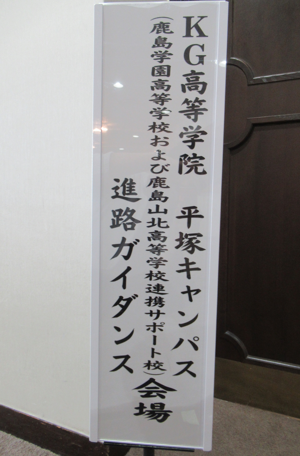 KG高等学院 平塚キャンパス
(鹿島学園高等学校および鹿島山北高等学校連携サポート校)
進路ガイダンス
会場